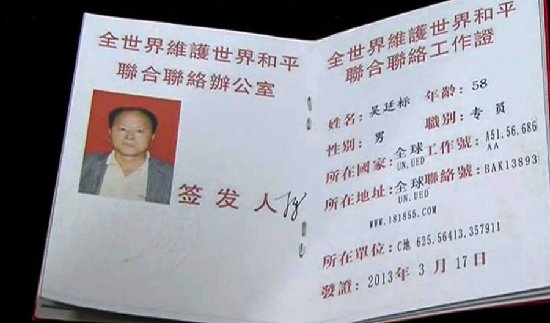 全世界維護世界和平
聯合聯絡辦公室
签发人
全世界維護世界和平
聯合聯絡工作證
姓名: 吴廷标 年齡: 58
性别: 男 職别: 专員
所在國家: 全球 UN.UED 工作號: A51.56.686 AA
所在地址: 全球 UN.UED 聯絡號: BAK13893
WWW.181855.COM
所在單位: C地 625.56413.357911
發證: 2013年 3 月 17日